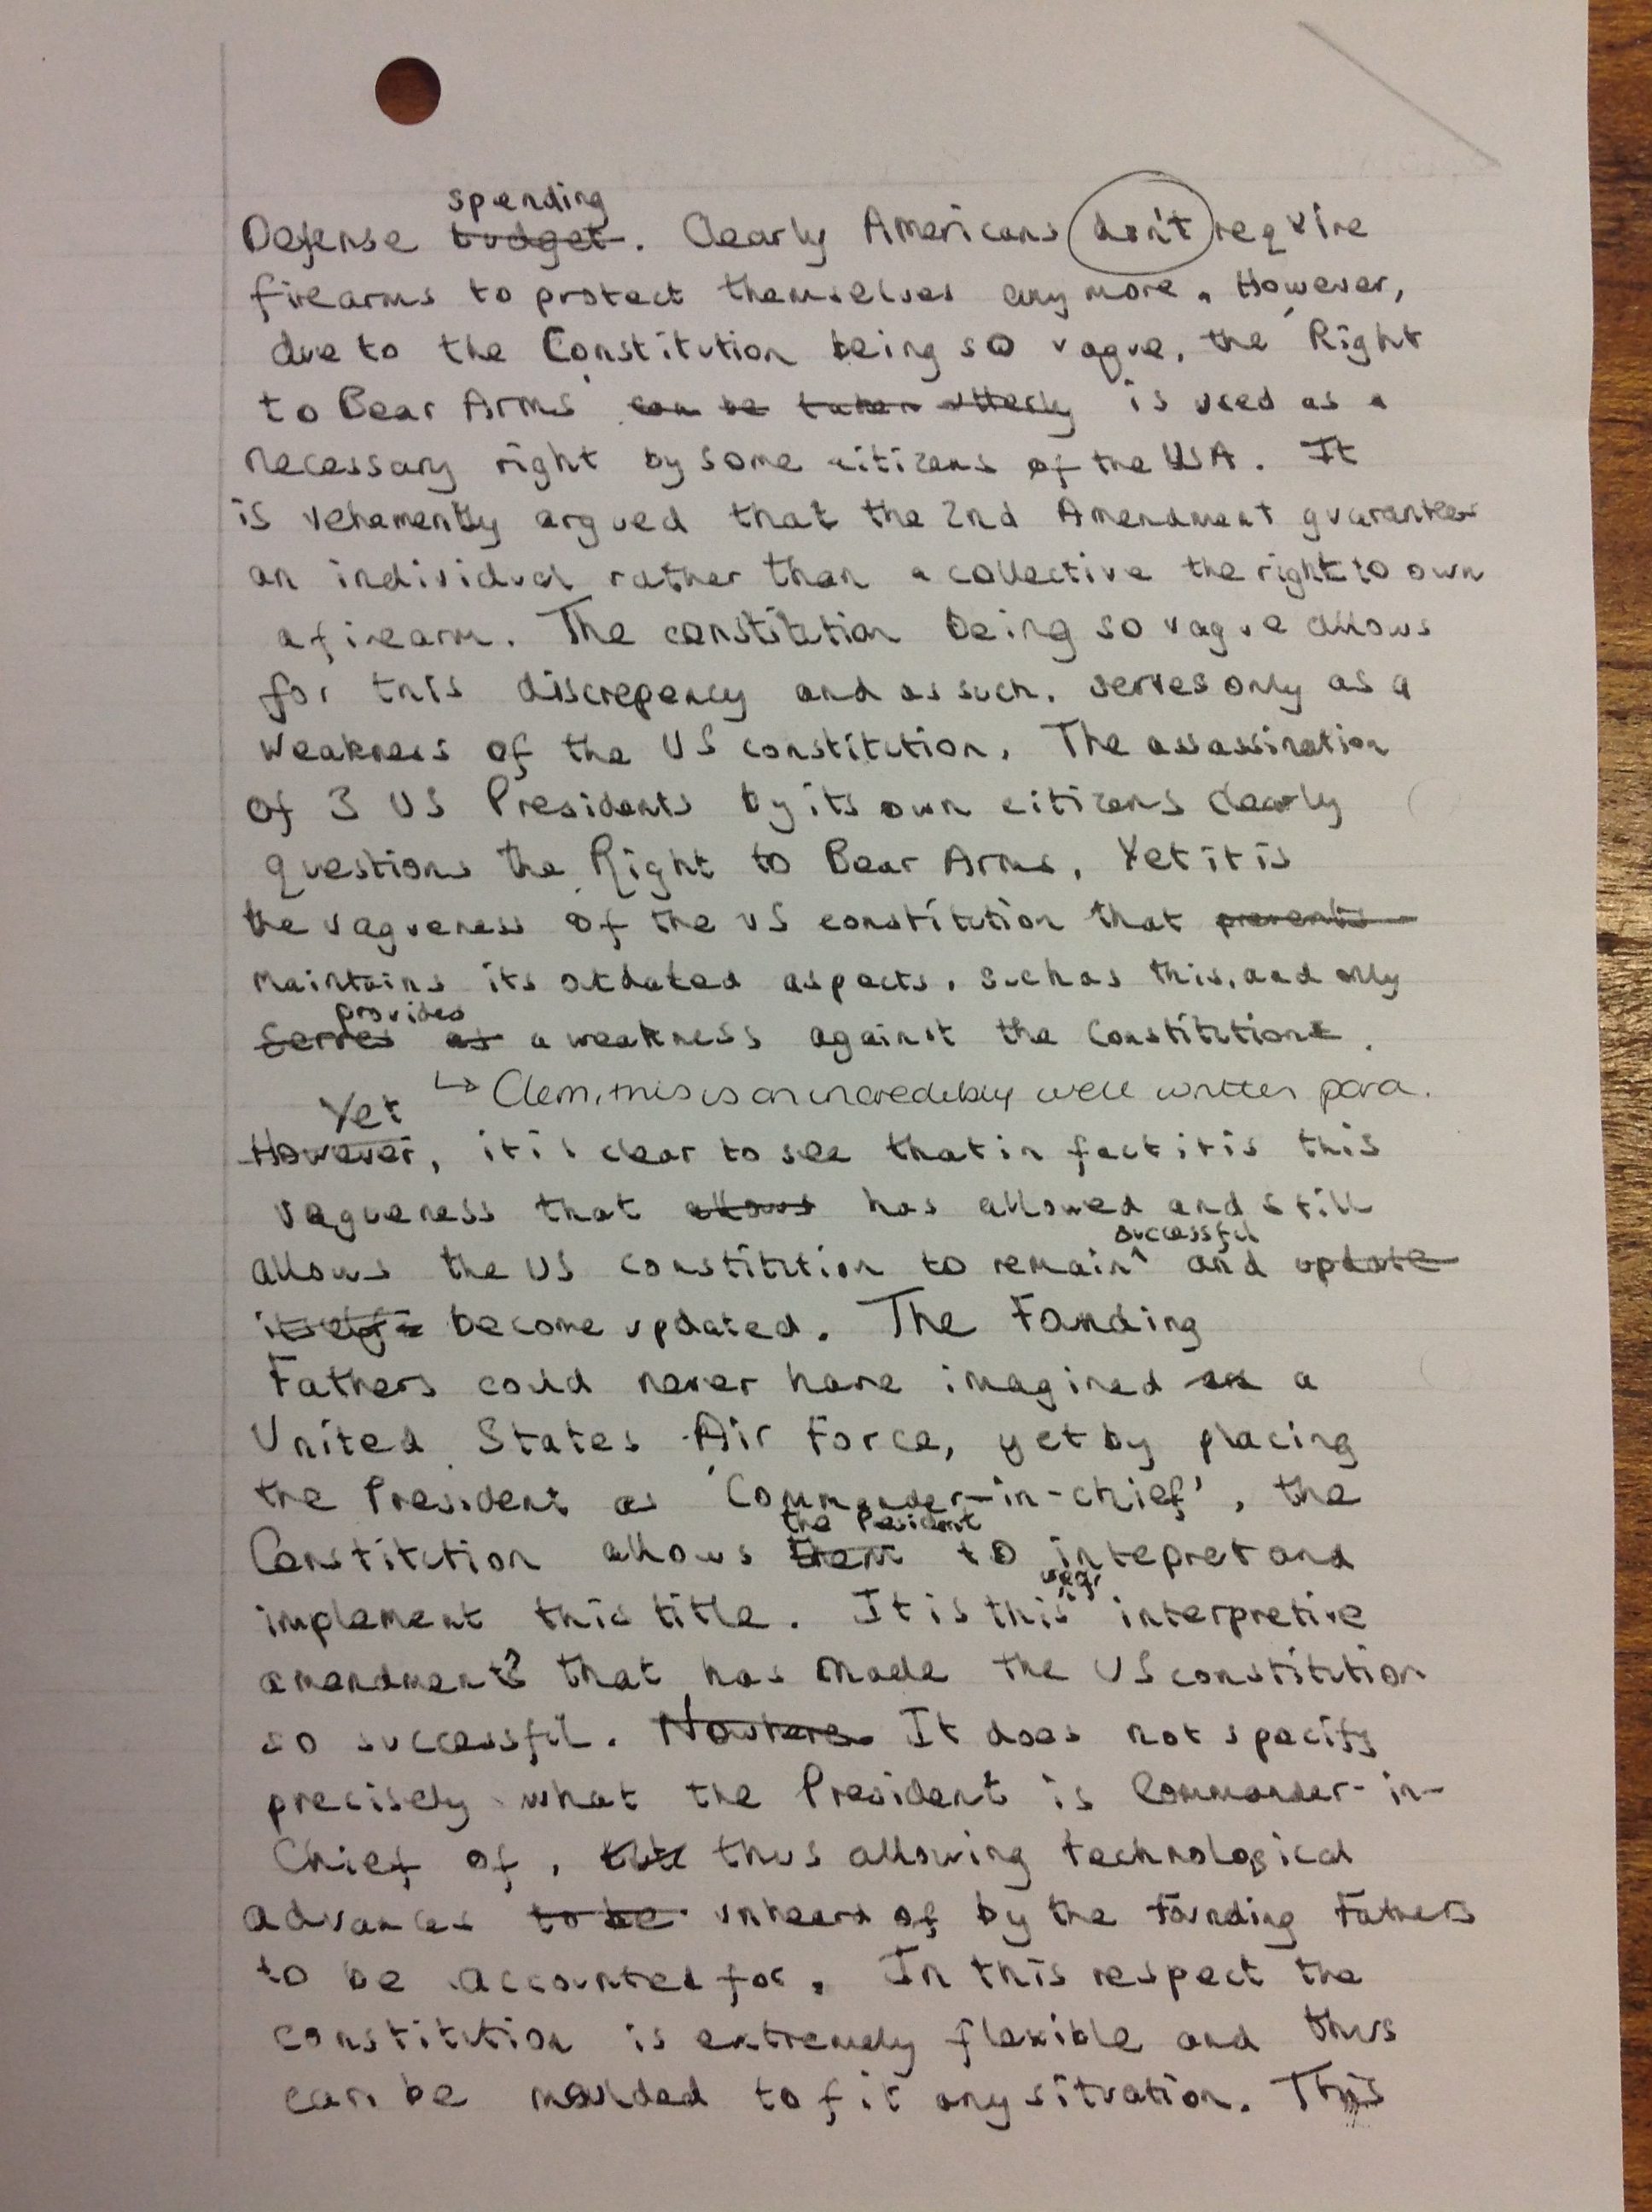 spending
Defense budget. Clearly Americans don't require
firearms to protect themselves anymore. However,
due to the Constitution being so vague, the 'Right
to Bear Arms' can be taken utterly is used as a
necessary right by some citizens of the USA. It
is vehemently argued that the 2nd Amendment guarantees
an individual rather than a collective the right to own
a firearm. The constitution being so vague allows
for this discrepency and as such, serves only as a
weakness of the US constitution. The assassination
of 3 US Presidents by its own citizens clearly
questions the Right to Bear Arms, Yet it is
the vagueness of the US constitution that prevents
maintains its outdated aspects, such as this, and only
provides
serves as a weakness against the Constitution.
↳ Clem, this is an incredibly well written para.
Yet
However, it is clear to see that in fact it is this
vagueness that allows has allowed and still
successful
allows the US constitution to remain^ and update
itself become updated. The Founding
Fathers could never have imagined an a
United States Air Force, yet by placing
the President as 'Commander-in-chief', the
the Pesident
Constitution allows them to intepret and
vague
implement this title. It is this interpretive
amendment? that has made the US constitution
so successful. Nowhere It does not specify
precisely what the President is Commander-in-
Chief of, thus allowing technological
advances to be unheard of by the Founding Fathers
to be accounted for. In this respect the
constitution is extremely flexible and thus
can be moulded to fit any situation. This